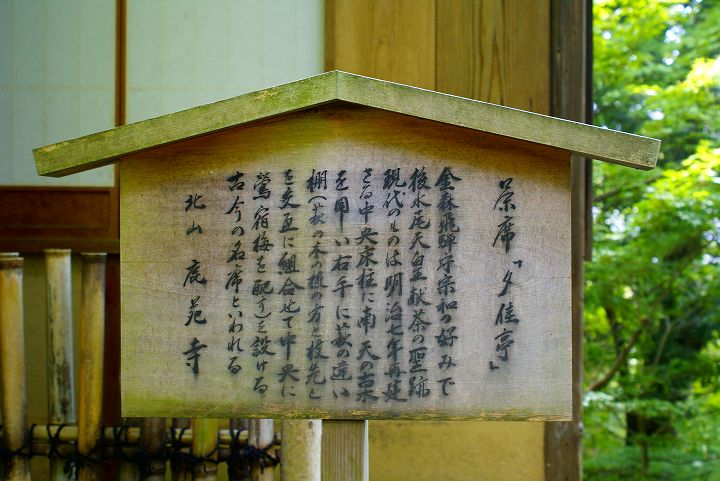 茶席「夕佳亭」
金森飛騨守宗和の好みで
後水尾天皇献茶の聖跡
現代のものは明治七年再建
さる中央床柱に南天の古木
を用い右手に萩の違い
棚（萩の木の根の方と枝先と
を交互に組合せて中央に
鶯宿梅を配す）を設ける
古今の名席といわれる
北山 鹿苑寺